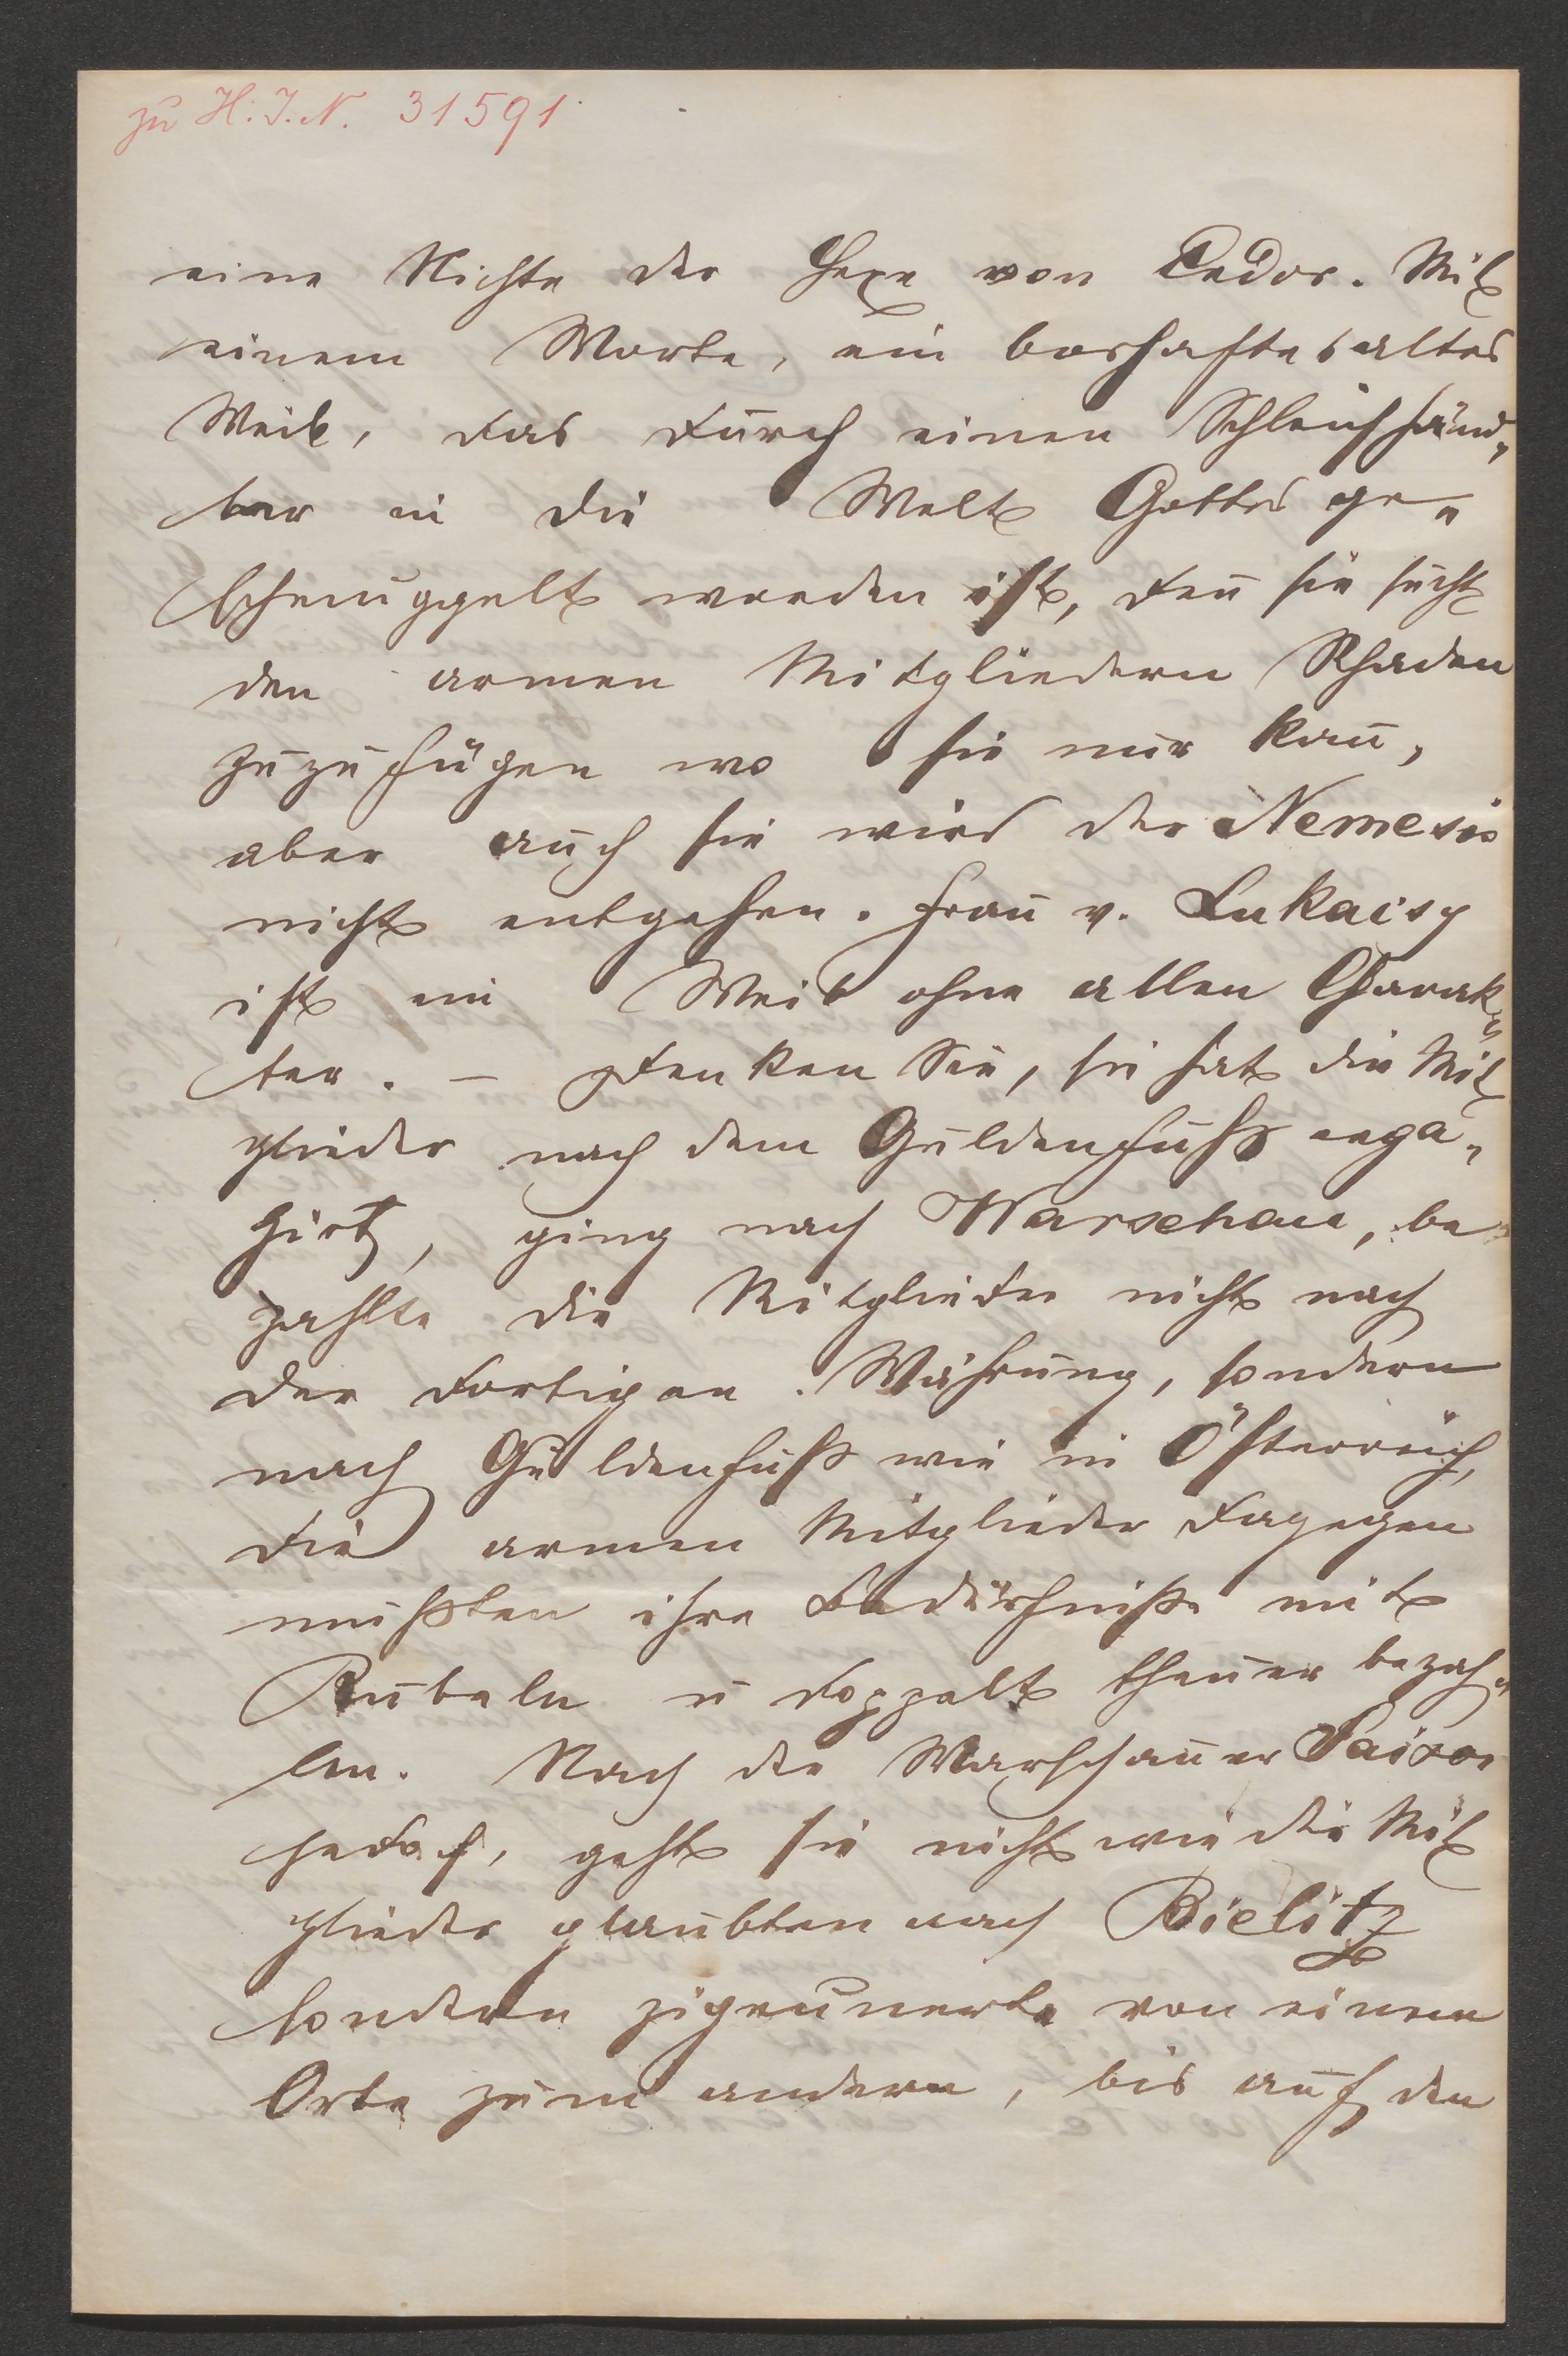 zu H. I. N. 31591
eine Nichte der Hexe von Endor. Mit
einem Worte, ein boshaftes altes
Weib, das durch einen Schleichhänd„
ler in die Welt Gottes ge„
schmuggelt worden ist, den̄ sie sucht
den armen Mitgliedern Schaden
zuzufügen wo sie nur kan̄,
aber auch sie wird der Nemesis
nicht entgehen. Frau v. Lukacsy
ist ein Weib ohne allen Charak„
ter. – Denken Sie, sie hat die Mit
glieder nach dem Guldenfuß enga„
girt, ging nach Warschau, be„
zahlte die Mitglieder nicht nach
der dortigen Währung, sondern
nach Guldenfuß wie in Österreich,
die armen Mitglieder dagegen
mußten ihre Bedürfniße mit
Rubeln u doppelt theuer bezah„
len. Nach der Warschauer Saison
jedoch, geht sie nicht wie die Mit
glieder glaubten nach Bielitz
sondern zigeunerte von einem
Orte zum andern, bis auf den